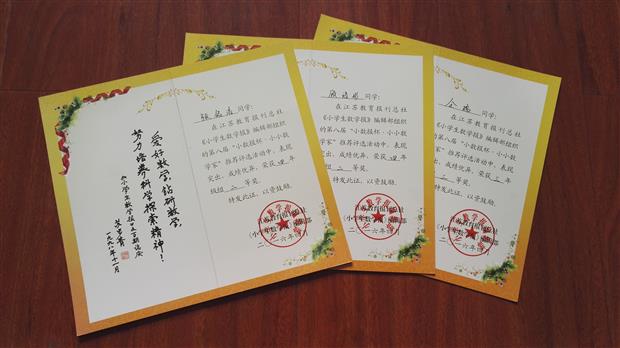 爱好数学，钻研数学
努力培养科学探索精神！
同学：
在江苏教育报刊总社
《小学生数学报》编辑部组织
的第八届“小数报杯·小小数
学家”推荐评选活动中，表现
突出，成绩优异，荣获四年
级组二等奖。
特发此证，以资鼓励。
江苏教育报刊总社
《小学生数学报》编辑部
二〇一六年
同学：
在江苏教育报刊总社
《小学生数学报》编辑部组织
的第八届“小数报杯·小小数
学家”推荐评选活动中，表现
突出，成绩优异，荣获
级组二等奖。
特发此证，以资鼓励。
同学：
在江苏教育报刊总社
《小学生数学报》编辑部组织
的第八届“小数报杯·小小数
学家”推荐评选活动中，表现
突出，成绩优异，荣获
级组二等奖。
特发此证，以资鼓励。